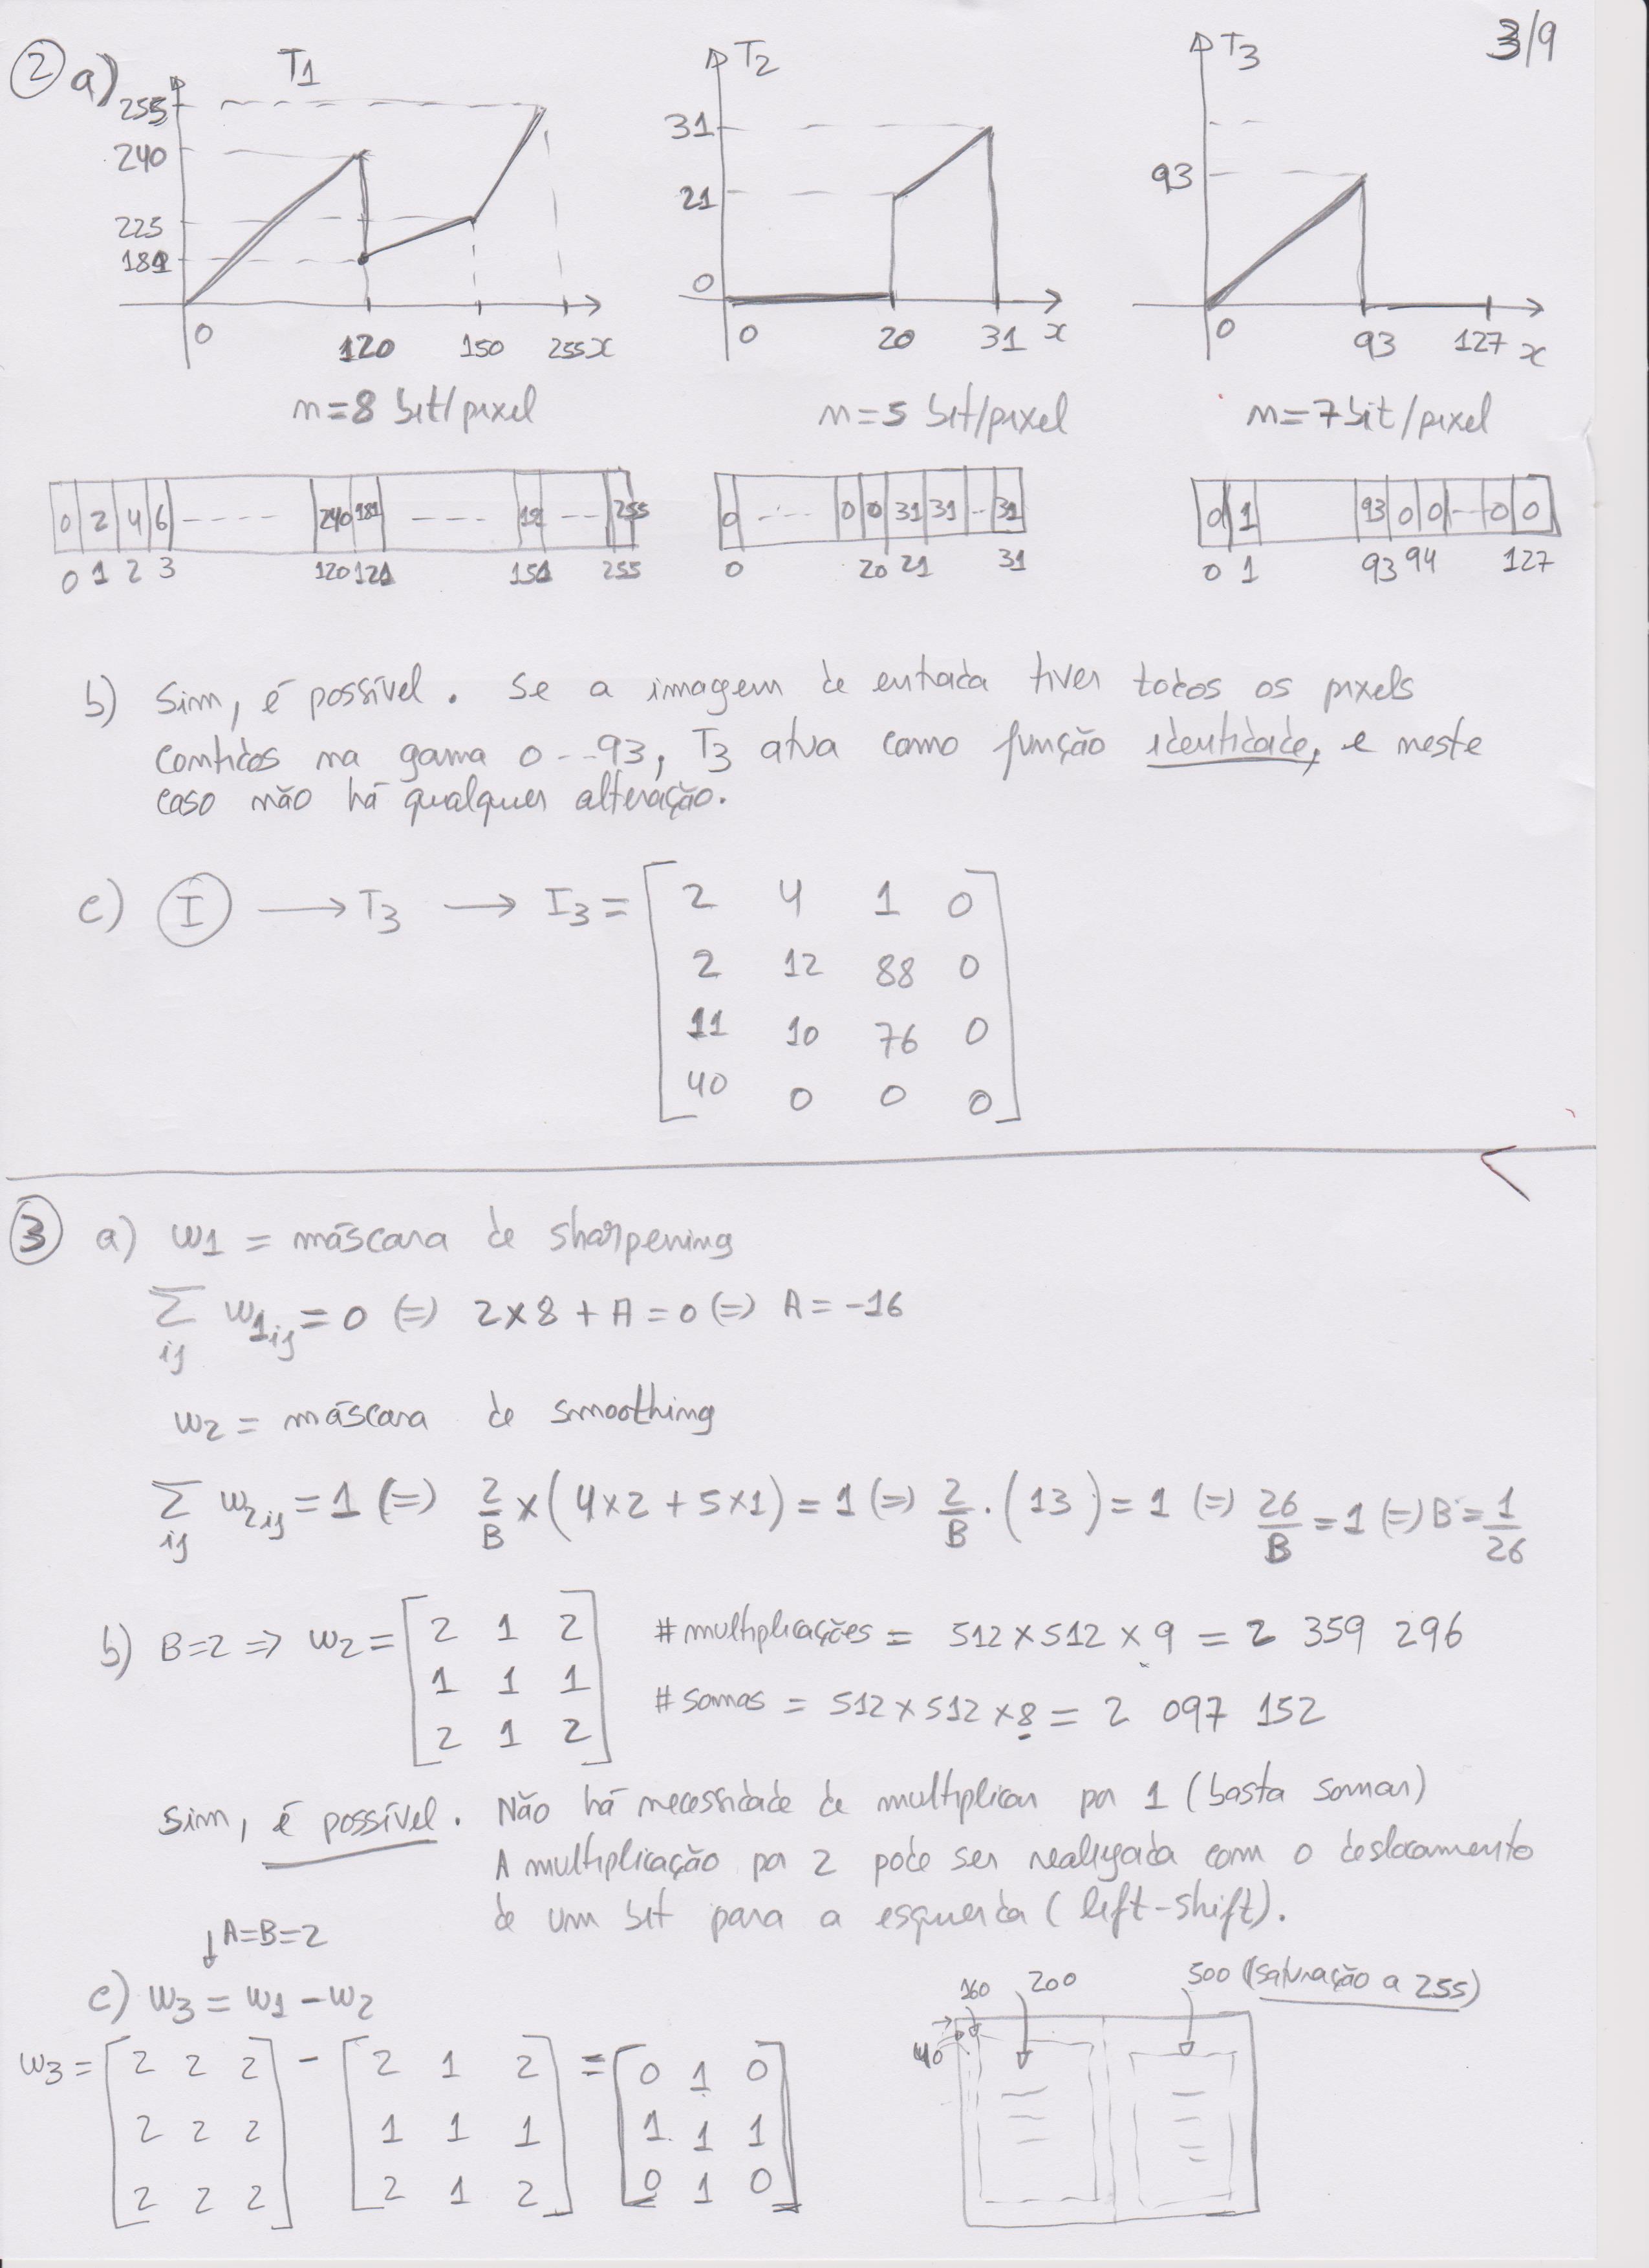 3/9
② a)
T1
255
240
225
181
0 120 150 255 x
n=8 bit/pixel
T2
31
21
0
0 20 31 x
n=5 bit/pixel
T3
93
0 93 127 x
n=7 bit/pixel
0 2 4 6 ---- 240 181 ---- --- 255
0 1 2 3 120 121 151 255
0 ---- 0 0 31 31 -- 31
0 20 21 31
0 1 93 0 0 --- 0 0
0 1 93 94 127
b) Sim, é possível. Se a imagem de entrada tiver todos os pixels
contidos na gama 0 --- 93, T3 atua como função identidade, e neste
caso não há qualquer alteração.
c) I → T3 → I3 =
2 4 1 0
2 12 88 0
11 10 76 0
40 0 0 0
③ a) w1 = máscara de sharpening
∑ij w1ij = 0 (=) 2×8 + A = 0 (=) A = -16
w2 = máscara de smoothing
∑ij w2ij = 1 (=) 2/B × (4×2 + 5×1) = 1 (=) 2/B · (13) = 1 (=) 26/B = 1 (=) B = 1/26
b) B=2 => w2 =
2 1 2
1 1 1
2 1 2
# multiplicações = 512×512×9 = 2 359 296
# somas = 512×512×8 = 2 097 152
Sim, é possível. Não há necessidade de multiplicar por 1 (basta somar)
A multiplicação por 2 pode ser realizada com o deslocamento
de um bit para a esquerda (left-shift).
↓A=B=2
c) w3 = w1 - w2
w3 =
2 2 2
2 2 2
2 2 2
-
2 1 2
1 1 1
2 1 2
=
0 1 0
1 1 1
0 1 0
160 200 500 (saturação a 255)
40